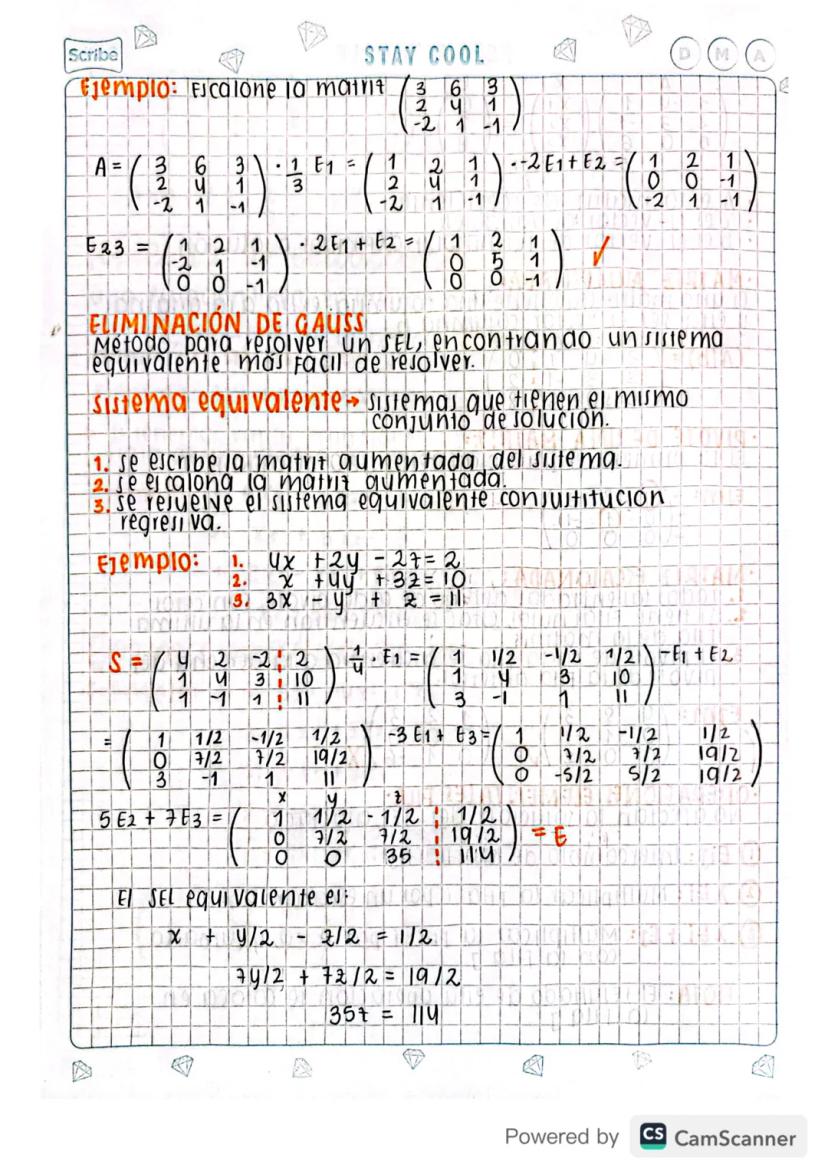 Scribe
STAY COOL
D M A
Ejemplo: Escalone la matriz ( 3 6 3
2 4 1
-2 1 -1 )
A = ( 3 6 3 ) · 1/3 E1 = ( 1 2 1 ) · -2E1 + E2 = ( 1 2 1
2 4 1 2 4 1 0 0 -1
-2 1 -1 -2 1 -1 -2 1 -1 )
E23 = ( 1 2 1 ) · 2E1 + E2 = ( 1 2 1 ) ✓
-2 1 -1 0 5 1
0 0 -1 0 0 -1
ELIMINACIÓN DE GAUSS
Método para resolver un SEL, encontrando un sistema
equivalente más facil de resolver.
Sistema equivalente → sistemas que tienen el mismo
conjunto de solución.
1. se escribe la matriz aumentada del sistema.
2. se escalona la matriz aumentada.
3. se resuelve el sistema equivalente con sustitución
regresiva.
Ejemplo: 1. 4x + 2y - 2z = 2
2. x + 4y + 3z = 10
3. 3x - y + z = 11
S = ( 4 2 -2 ¦ 2 ) 1/4 · E1 = ( 1 1/2 -1/2 1/2 ) -E1 + E2
1 4 3 ¦ 10 1 4 3 10
1 -1 1 ¦ 11 3 -1 1 11
= ( 1 1/2 -1/2 1/2 ) -3E1 + E3 = ( 1 1/2 -1/2 1/2 )
0 7/2 7/2 19/2 0 7/2 7/2 19/2
3 -1 1 11 0 -5/2 5/2 19/2
x y z
5E2 + 7E3 = ( 1 1/2 -1/2 ¦ 1/2 ) = E
0 7/2 7/2 ¦ 19/2
0 0 35 ¦ 114
El SEL equivalente es:
x + y/2 - z/2 = 1/2
7y/2 + 7z/2 = 19/2
35z = 114
Powered by CS CamScanner